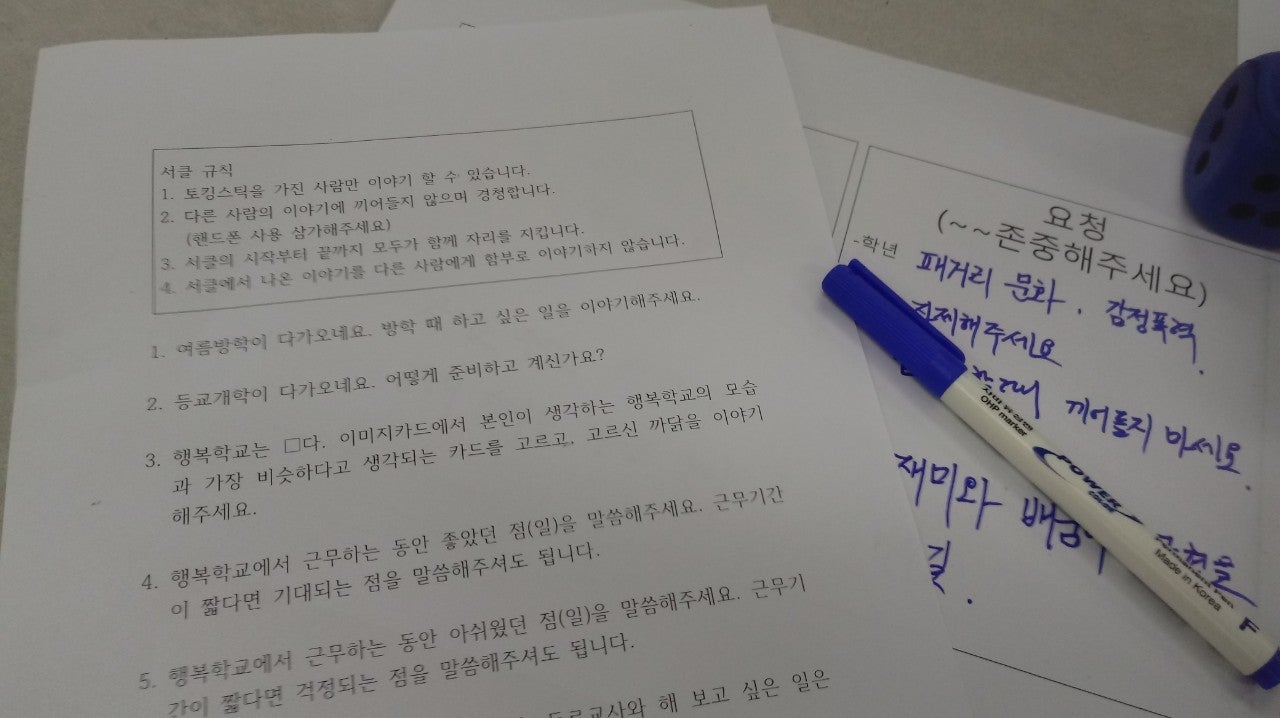 서클 규칙
1. 토킹스틱을 가진 사람만 이야기 할 수 있습니다.
2. 다른 사람의 이야기에 끼어들지 않으며 경청합니다.
(핸드폰 사용 삼가해주세요)
3. 서클의 시작부터 끝까지 모두가 함께 자리를 지킵니다.
4. 서클에서 나온 이야기를 다른 사람에게 함부로 이야기하지 않습니다.
1. 여름방학이 다가오네요. 방학 때 하고 싶은 일을 이야기해주세요.
2. 등교개학이 다가오네요. 어떻게 준비하고 계신가요?
3. 행복학교는 □다. 이미지카드에서 본인이 생각하는 행복학교의 모습
과 가장 비슷하다고 생각되는 카드를 고르고, 고르신 까닭을 이야기
해주세요.
4. 행복학교에서 근무하는 동안 좋았던 점(일)을 말씀해주세요. 근무기간
이 짧다면 기대되는 점을 말씀해주셔도 됩니다.
5. 행복학교에서 근무하는 동안 아쉬웠던 점(일)을 말씀해주세요. 근무기
간이 짧다면 걱정되는 점을 말씀해주셔도 됩니다.
해 보고 싶은 일은
요청
(~~존중해주세요)
-학년
패거리 문화, 감정폭력
끼어들지 마세요.
재미와
길.
OHP marker
POWER
Made in Korea
F